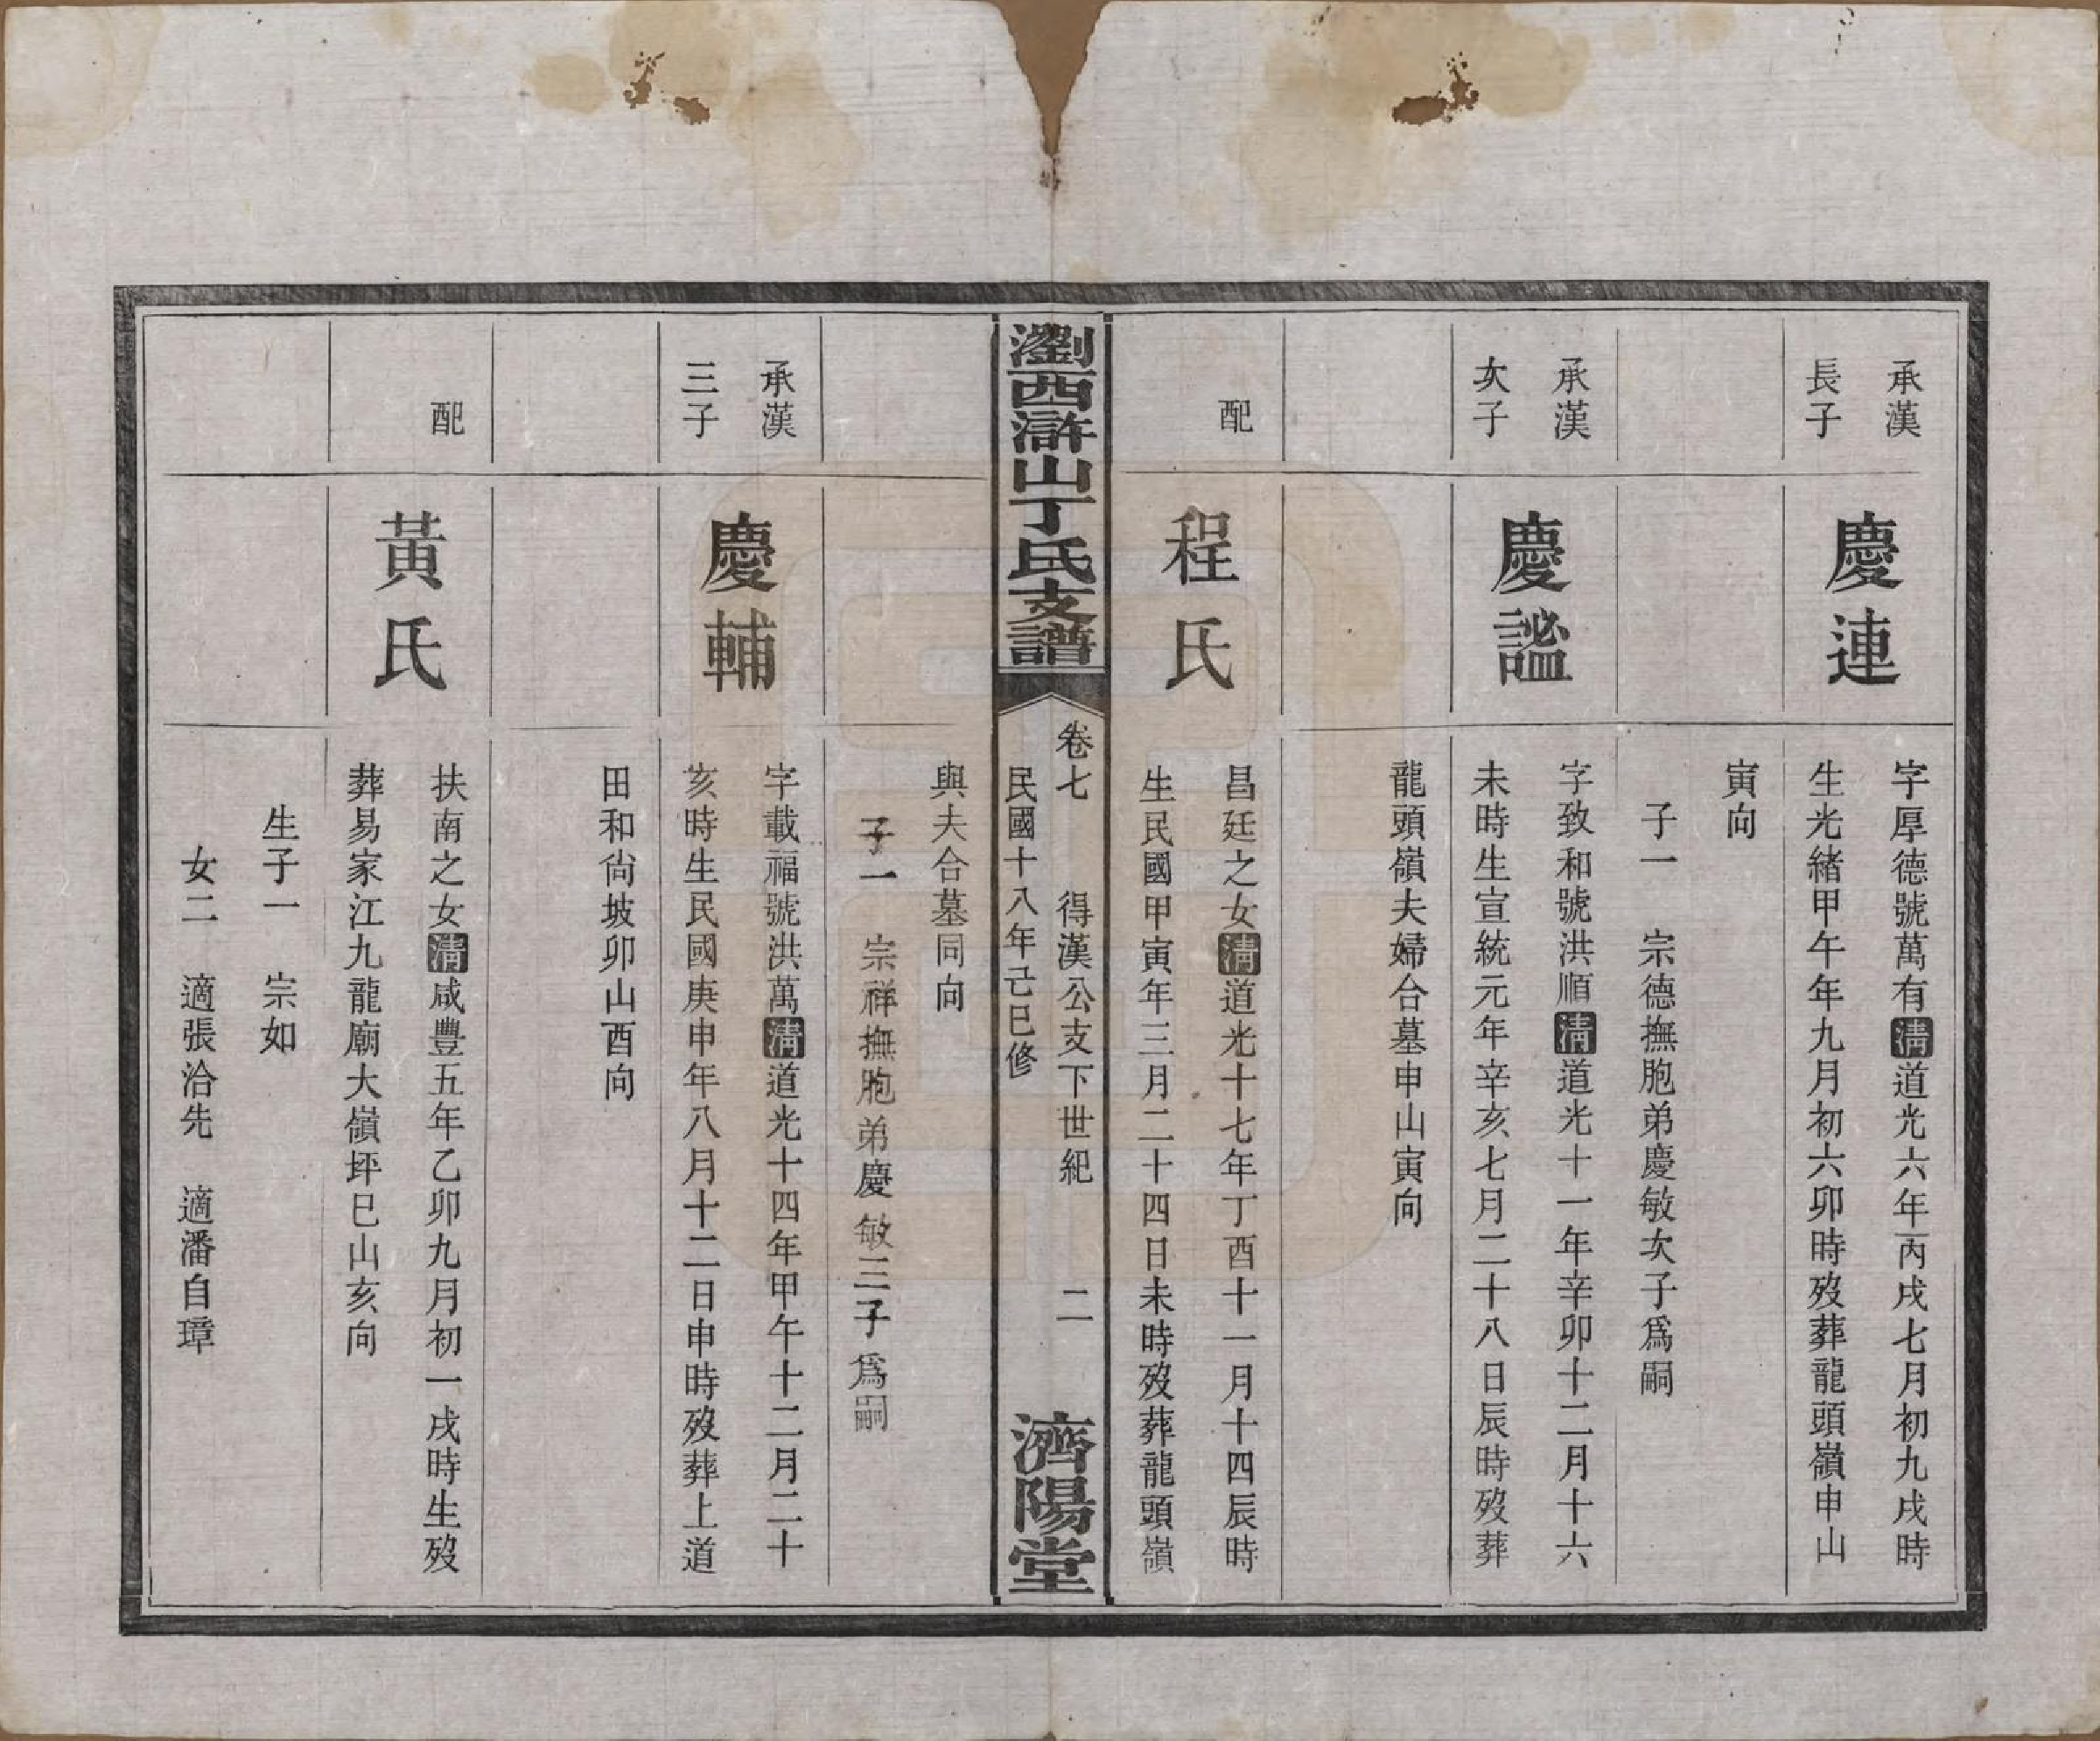 承漢
長子
慶連
字厚德號萬有清道光六年丙戌七月初九戌時
生光緒甲午年九月初六卯時歿葬龍頭嶺申山
寅向
子一　宗德撫胞弟慶敏次子爲嗣
承漢
次子
慶謐
字致和號洪順清道光十一年辛卯十二月十六
未時生宣統元年辛亥七月二十八日辰時歿葬
龍頭嶺夫婦合墓申山寅向
配
程氏
昌廷之女清道光十七年丁酉十一月十四辰時
生民國甲寅年三月二十四日未時歿葬龍頭嶺
瀏西滸山丁氏支譜
卷七　得漢公支下世紀　二
民國十八年己巳修
濟陽堂
與夫合墓同向
子一　宗祥撫胞弟慶敏三子爲嗣
承漢
三子
慶輔
字載福號洪萬清道光十四年甲午十二月二十
亥時生民國庚申年八月十二日申時歿葬上道
田和尙坡卯山酉向
配
黃氏
扶南之女清咸豐五年乙卯九月初一戌時生歿
葬易家江九龍廟大嶺坪巳山亥向
生子一　宗如
女二　適張洽先　適潘自璋